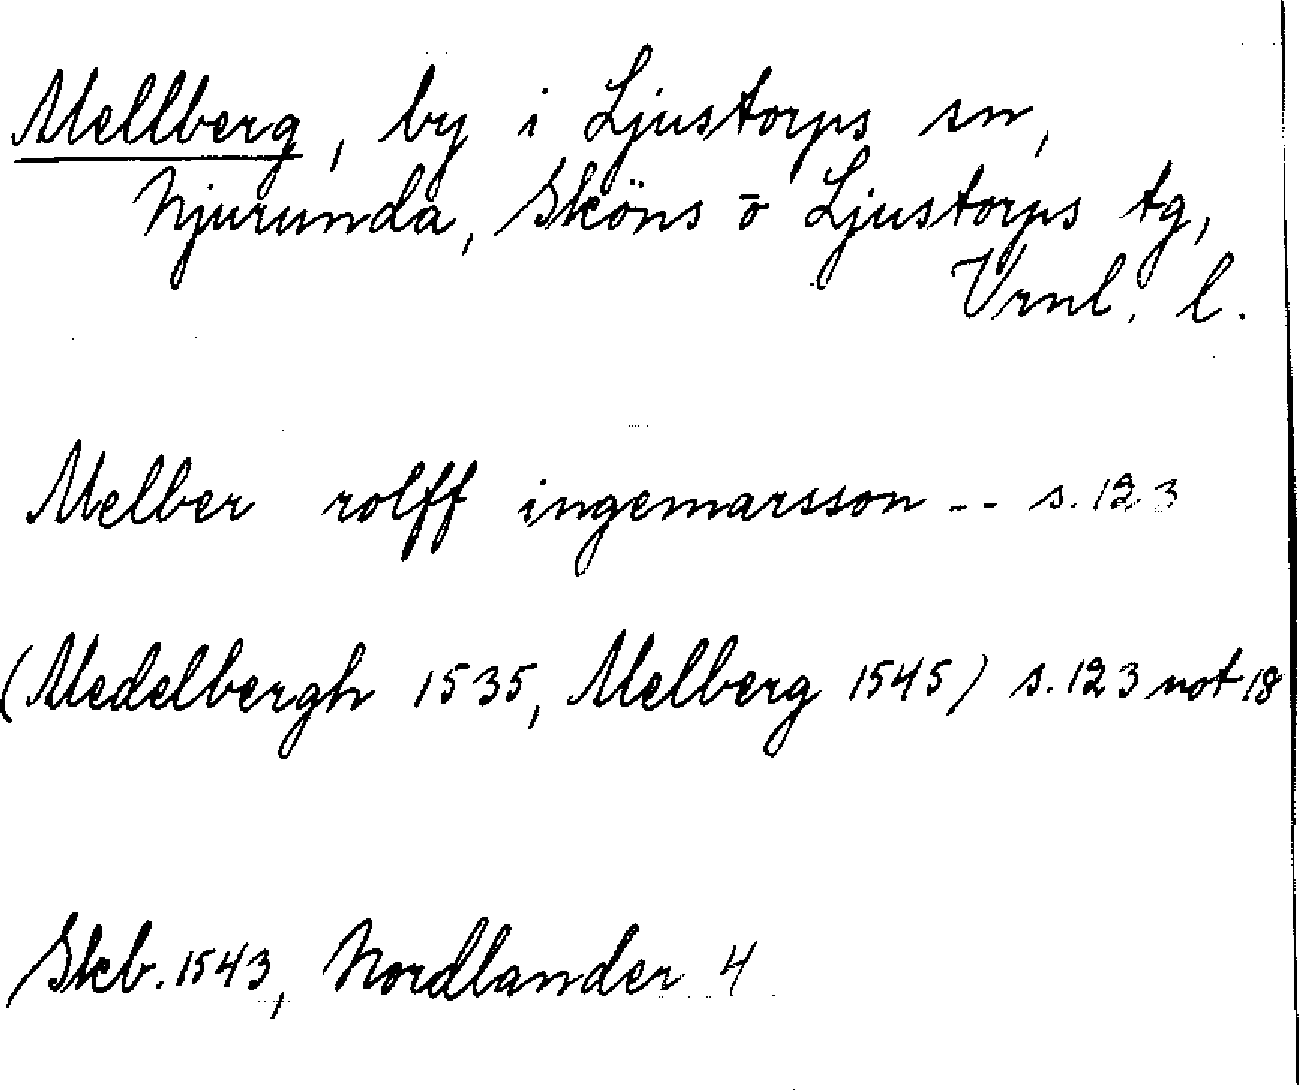 Mellberg, by i Ljustorps sn,
Njurunda, Sköns o Ljustorps tg,
Vrnl. l.
Melber rolff ingemarsson -- s. 123
(Medelbergh 1535, Melberg 1545) s. 123 not 18
Skb. 1543, Nordlander 4